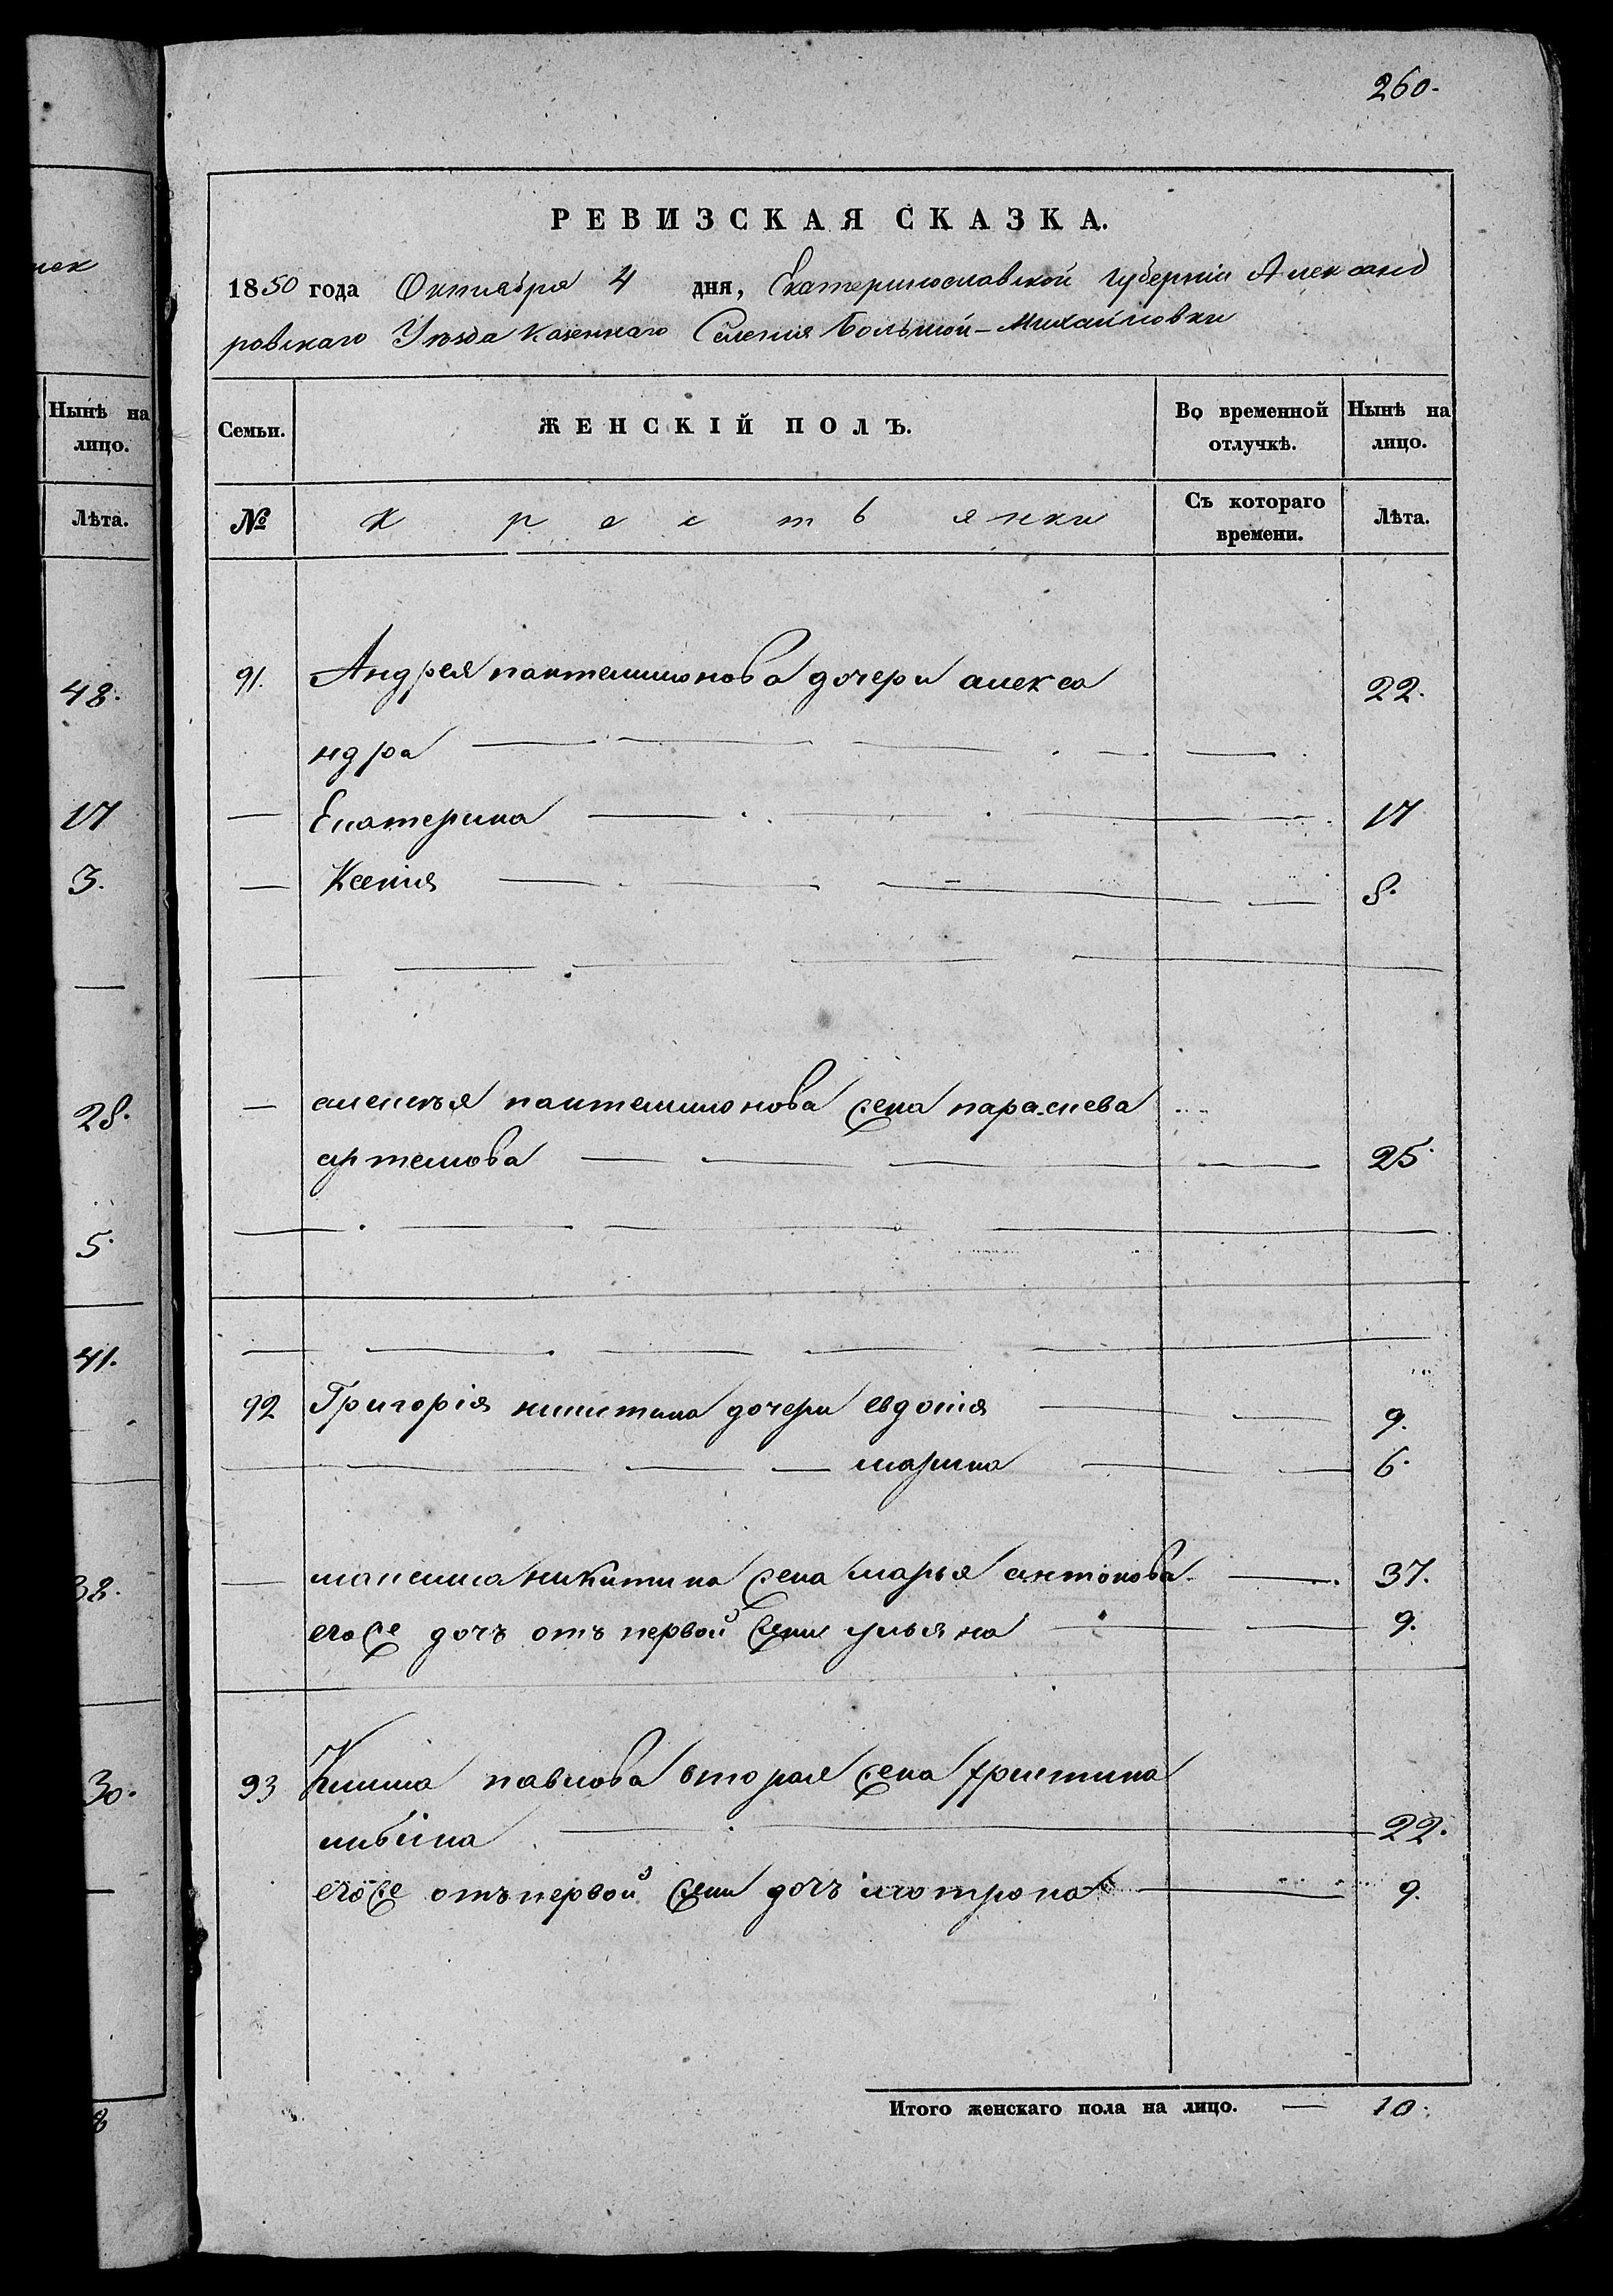 260.
РЕВИЗСКАЯ СКАЗКА.
1850 года Октября 4 дня, Екатеринославской Губерніи Александ
ровскаго Уѣзда Казеннаго Селенія Большой-Михайловки
Семьи. ЖЕНСКІЙ ПОЛЪ. Во временной отлучкѣ. Нынѣ на лицо.
№ Крестьянки Съ котораго времени. Лѣта.
91. Андрея пантелимонова дочери алекса 22.
ндра
— Екатерина 17
— Ксенія 8.
— алексѣя пантелимонова жена параскева
артемова 25
92 Григорія никитина дочери евдокія 9.
марина 6.
— максима никитина жена марья антонова 37.
егоже дочъ отъ первой жены ульяна 9.
93 Клима павлова вторая жена христина
22.
егоже отъ первой жены дочъ мотрона 9.
Итого женскаго пола на лицо. — 10.
Нынѣ на
лицо.
Лѣта.
48.
17
3.
28.
5.
41.
38.
30.
8